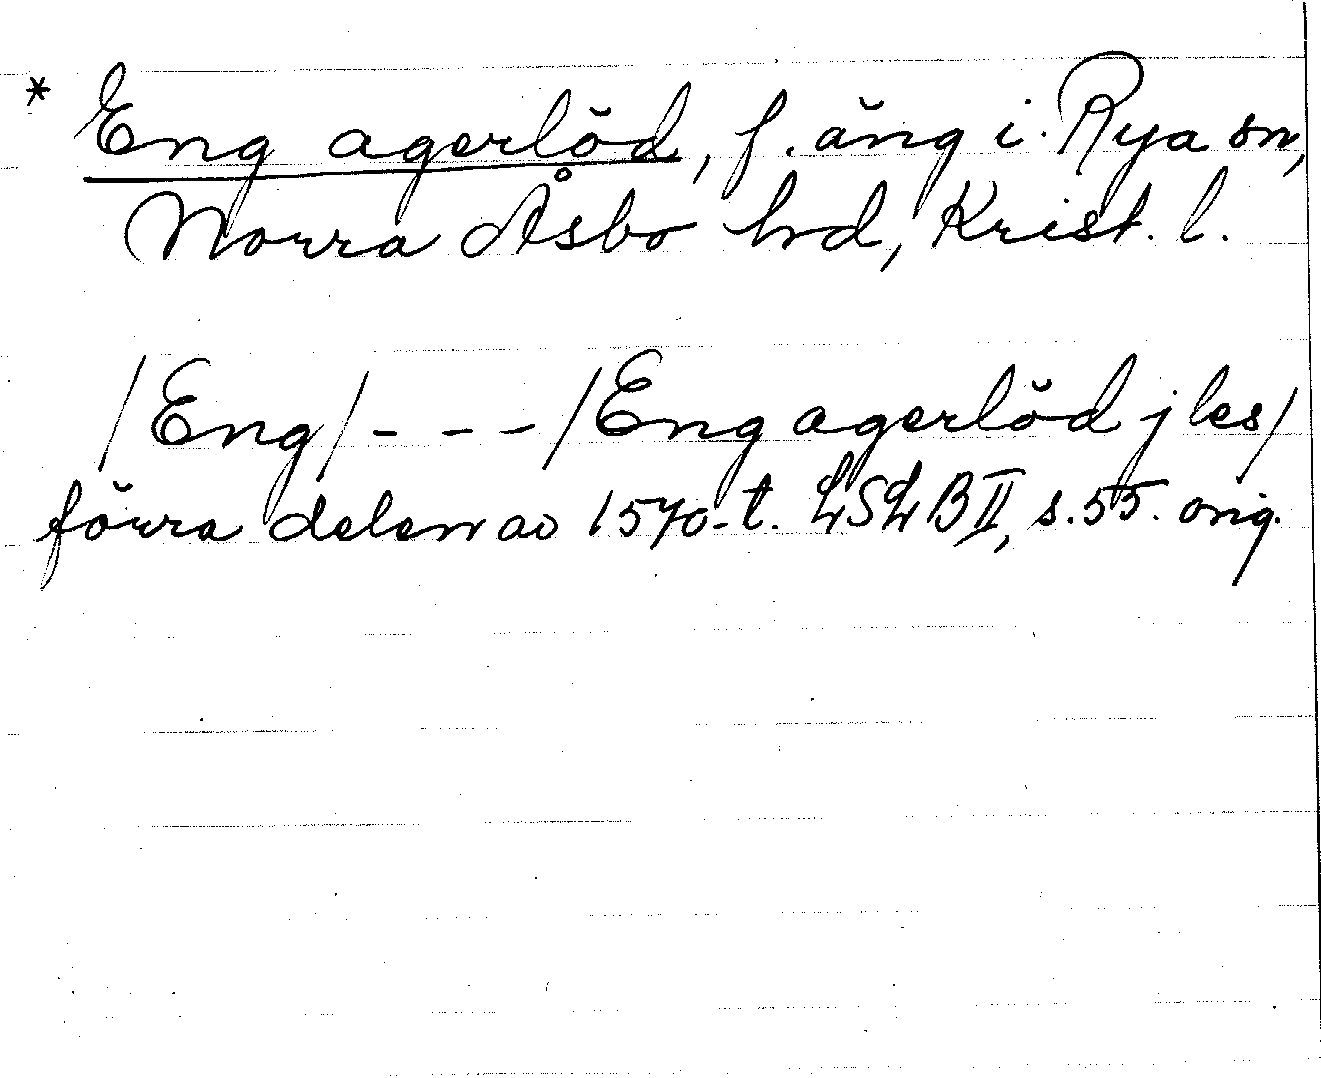 * Eng agerlöd, f. äng i Rya sn,
Norra Åsbo hrd, Krist. l.
/Eng/ - - - /Eng agerlöd j les/
förra delen av 1570-t. LSLB II, s. 55. orig.